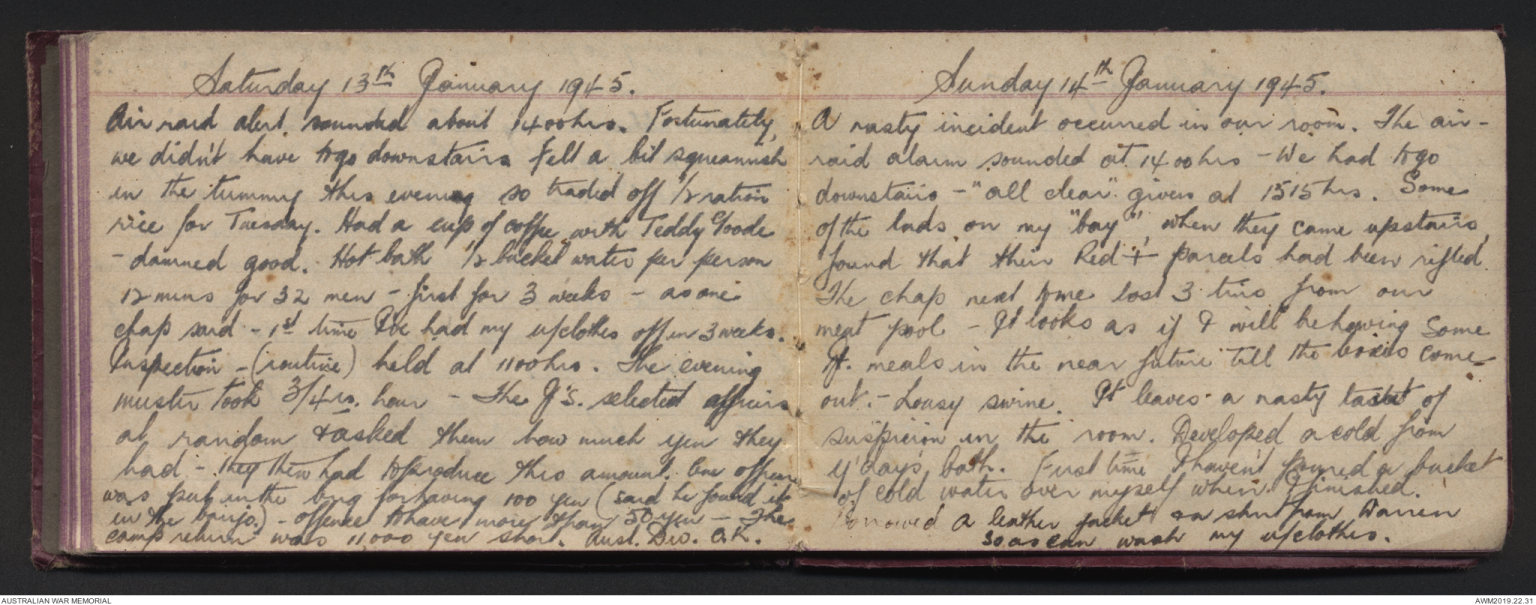 Saturday 13th January 1945.
Air raid alert sounded about 1400hrs. Fortunately,
we didn't have to go downstairs Felt a bit squeamish
in the tummy this evening so traded off 1/2 ration
rice for Tuesday. Had a cup of coffee with Teddy Goode
- damned good. Hot bath 1/2 bucket water per person
12 mins for 32 men - first for 3 weeks - as one
chap said - 1st time I've had my u/clothes off in 3 weeks.
Inspection - (routine) held at 1100hrs. The evening
muster took 3/4 hour - The J's. selected officers
at random & asked them how much yen they
had - they then had to produce this amount. One officer
was put in the brig for having 100 yen (said he found it
in the banjo.) - offence to have more than 50 yen - The
camp return was 11,000 yen short. Aust. Div. O.K.
Sunday 14th January 1945.
A nasty incident occurred in our room. The air-
raid alarm sounded at 1400hrs - We had to go
downstairs - "all clear" given at 1515hrs. Some
of the lads on my "bay", when they came upstairs,
found that their Red + parcels had been rifled.
The chap next to me lost 3 tins from our
meat pool - It looks as if I will be having some
meals in the near future till the boxes come
out. - Lousy swine. It leaves a nasty taste of
suspicion in the room. Developed a cold from
y'day's bath. First time I haven't poured a bucket
of cold water over myself when I finished.
Borrowed a leather jacket & a shirt from Warren
so as can wash my u/clothes.
AUSTRALIAN WAR MEMORIAL
AWM2019.22.31